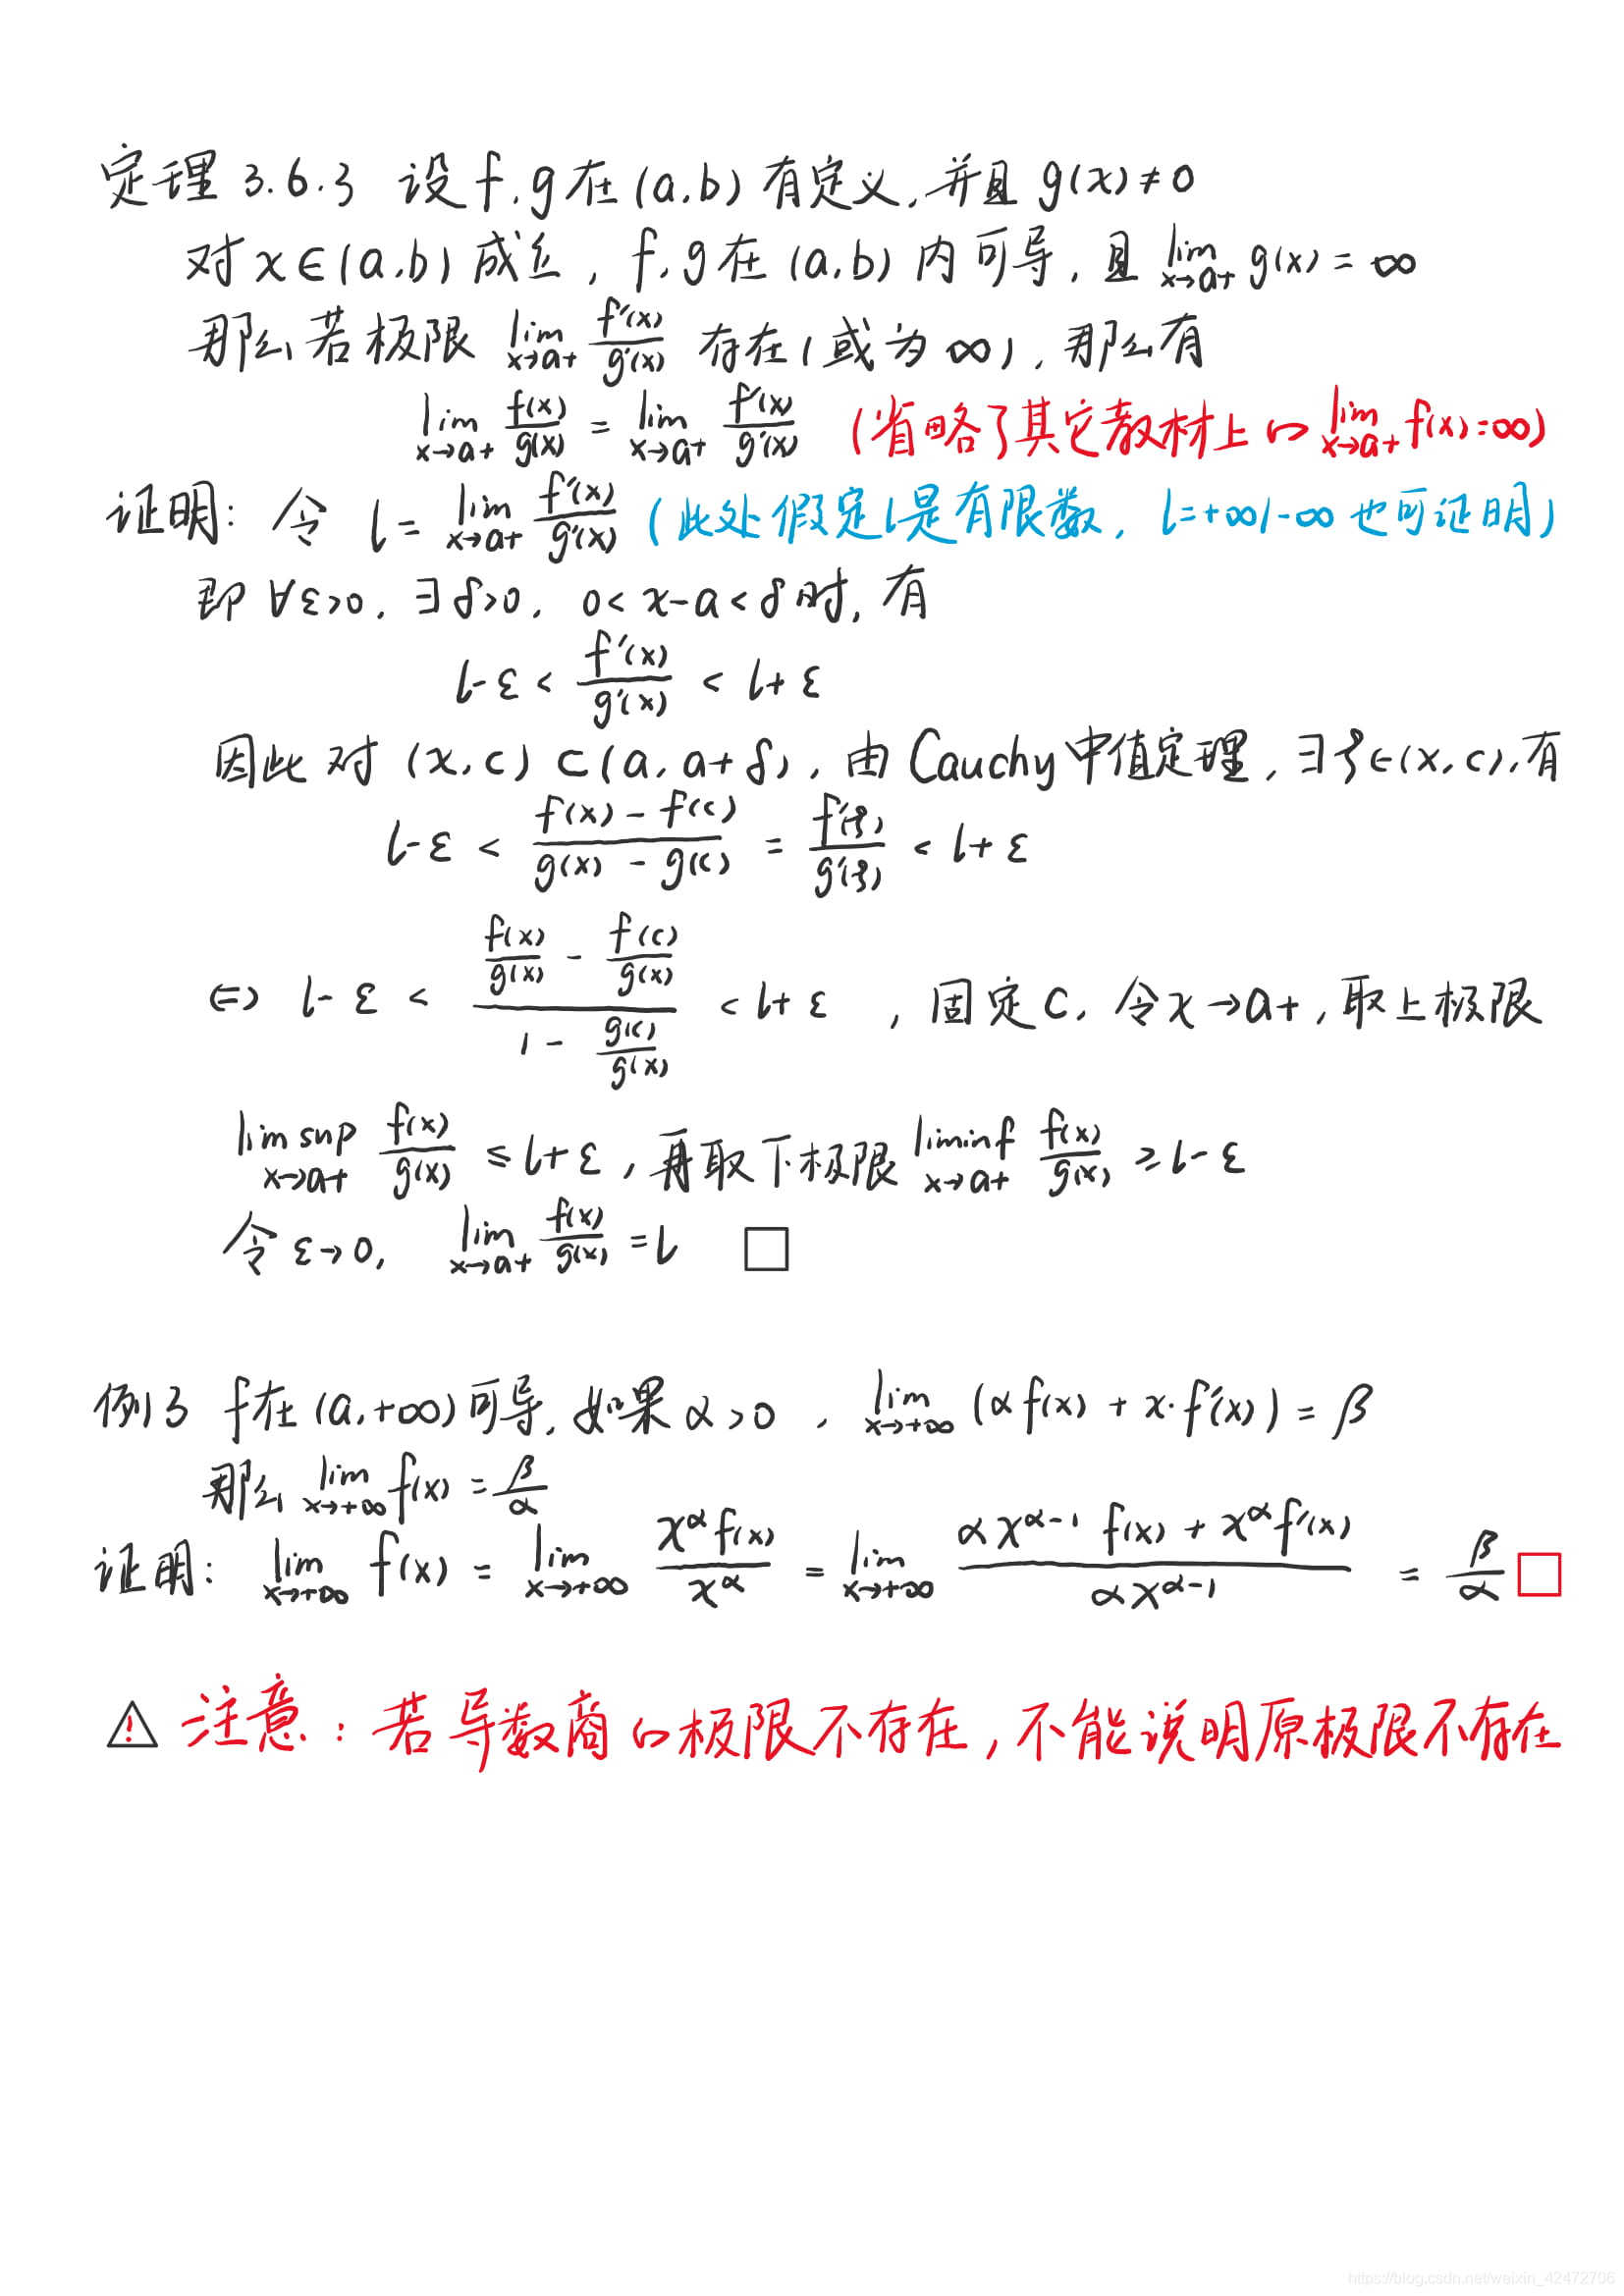 定理 3.6.3 设 f,g在(a,b)有定义,并且 g(x)≠0
对 x∈(a,b)成立, f,g在(a,b)内可导,且 lim_{x→a+} g(x)=∞
那么若极限 lim_{x→a+} f'(x)/g'(x) 存在(或为∞),那么有
lim_{x→a+} f(x)/g(x) = lim_{x→a+} f'(x)/g'(x) (省略了其它教材上的 lim_{x→a+} f(x)=∞)
证明: 令 l= lim_{x→a+} f'(x)/g'(x) (此处假定l是有限数, l=+∞/-∞也可证明)
即 ∀ε>0, ∃δ>0, 0<x-a<δ时,有
l-ε < f'(x)/g'(x) < l+ε
因此对 (x,c)⊂(a,a+δ),由Cauchy中值定理,∃ξ∈(x,c),有
l-ε < (f(x)-f(c))/(g(x)-g(c)) = f'(ξ)/g'(ξ) < l+ε
⇔ l-ε < (f(x)/g(x) - f(c)/g(x))/(1 - g(c)/g(x)) < l+ε ,固定c,令x→a+,取上极限
lim sup_{x→a+} f(x)/g(x) ≤ l+ε,再取下极限 lim inf_{x→a+} f(x)/g(x) ≥ l-ε
令 ε→0, lim_{x→a+} f(x)/g(x) = l □
例3 f在(a,+∞)可导,如果α>0 , lim_{x→+∞} (αf(x) + x·f'(x)) = β
那么 lim_{x→+∞} f(x) = β/α
证明: lim_{x→+∞} f(x) = lim_{x→+∞} x^α f(x)/x^α = lim_{x→+∞} (αx^{α-1} f(x) + x^α f'(x))/(αx^{α-1}) = β/α □
⚠ 注意:若导数商的极限不存在,不能说明原极限不存在
https://blog.csdn.net/weixin_42472706